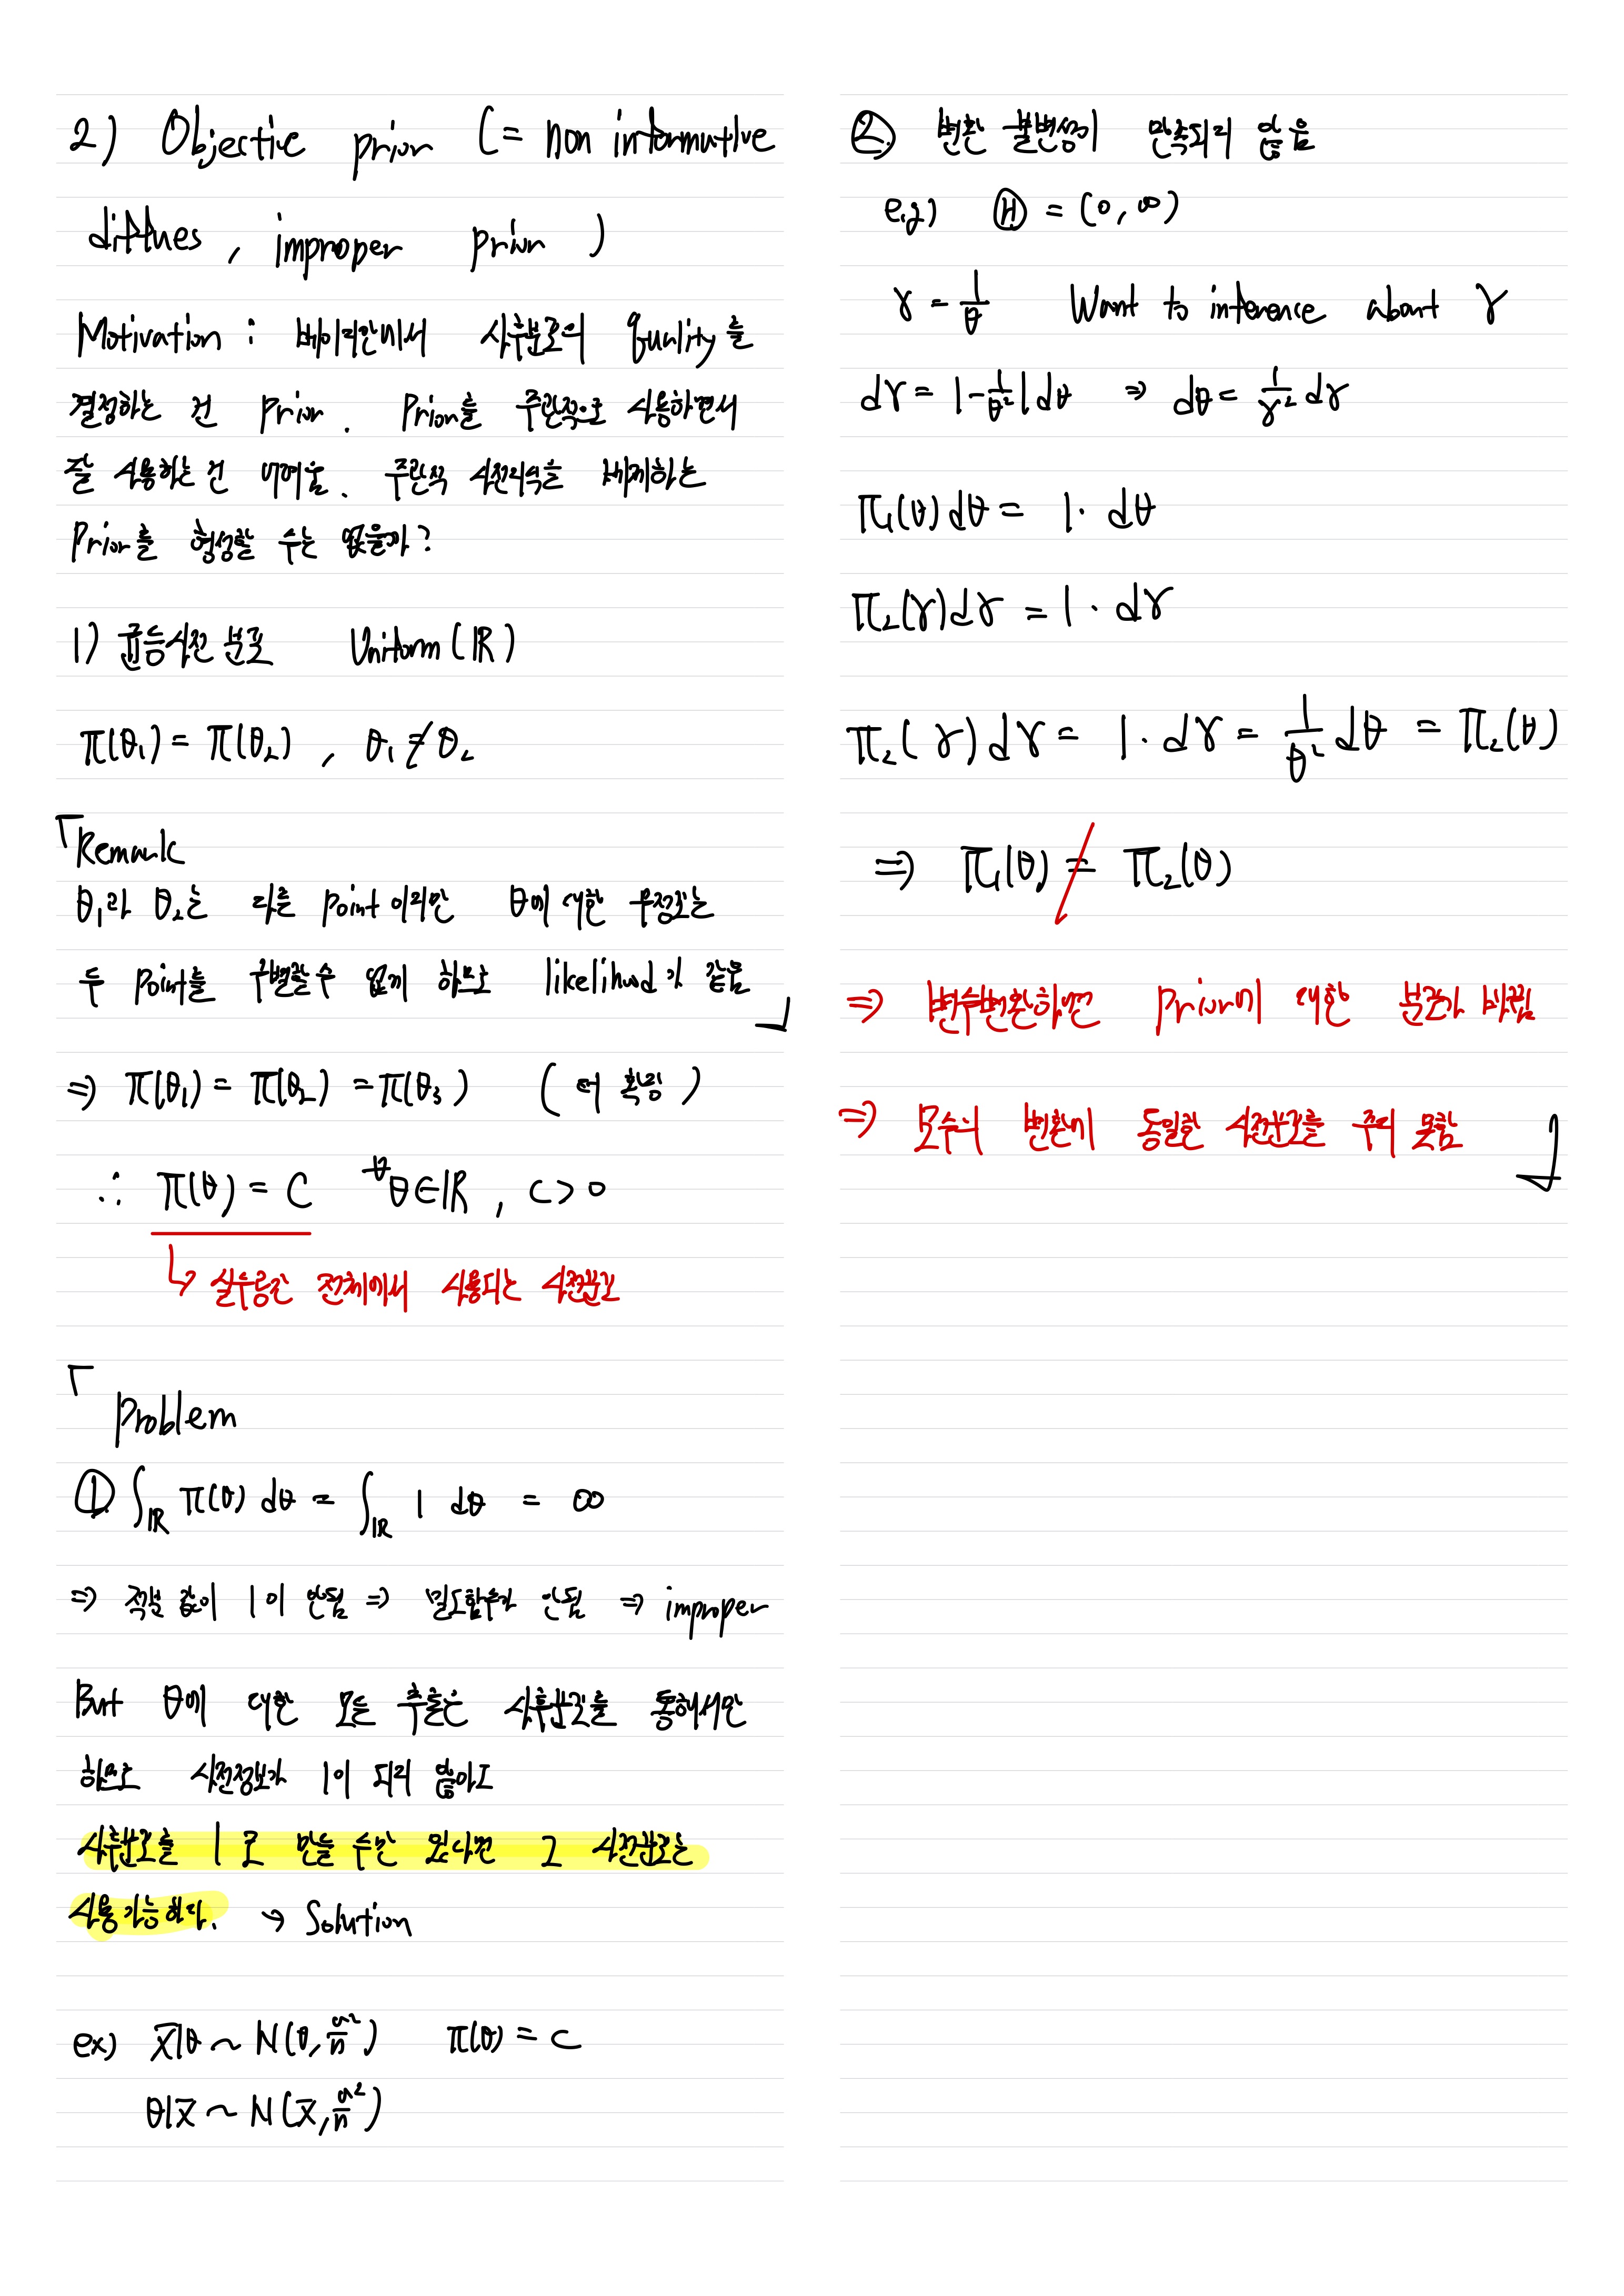 2) Objective prior (= non informative
diffues, improper prior )
Motivation : 베이지안에서 사후분포의 quality를
결정하는 건 Prior. Prior를 주관적으로 사용하면서
잘 사용하는 건 어려움. 주관적 사전지식을 배제하는
Prior를 형성할 수는 없을까?
1) 균등사전분포 Uniform (ℝ)
π(θ₁) = π(θ₂) , θ₁ ≠ θ₂
「Remark
θ₁과 θ₂는 다른 point 이지만 θ에 대한 무정보는
두 point를 구별할 수 없게 하므로 likelihood가 같음 」
⇒ π(θ₁) = π(θ₂) = π(θ₃) ( 더 확장 )
∴ π(θ) = C ∀θ∈ℝ, c > 0
↳ 실수공간 전체에서 사용되는 사전분포
「 Problem
① ∫ℝ π(θ) dθ = ∫ℝ 1 dθ = ∞
⇒ 적분 값이 1이 안됨 ⇒ 밀도함수가 안됨 ⇒ improper
But θ에 대한 모든 추론은 사후분포를 통해서만
하므로 사전정보가 1이 되지 않아도
사후분포를 1로 만들 수만 있다면 그 사전분포는
사용 가능하다. → Solution
ex) x̄|θ ~ N(θ, σ²/n) π(θ) = c
θ|x̄ ~ N(x̄, σ²/n)
② 변환 불변성이 만족되지 않음
e.g) Ⓗ = (0, ∞)
γ = 1/θ Want to inference about γ
dγ = |-1/θ²| dθ ⇒ dθ = 1/γ² dγ
π₁(θ)dθ = 1· dθ
π₂(γ)dγ = 1· dγ
π₂(γ)dγ = 1· dγ = 1/θ² dθ = π₂(θ)
⇒ π₁(θ) ≠ π₂(θ)
⇒ 변수변환하면 prior에 대한 분포가 바뀜
⇒ 모수의 변환에 동일한 사전분포를 주지 못함 」